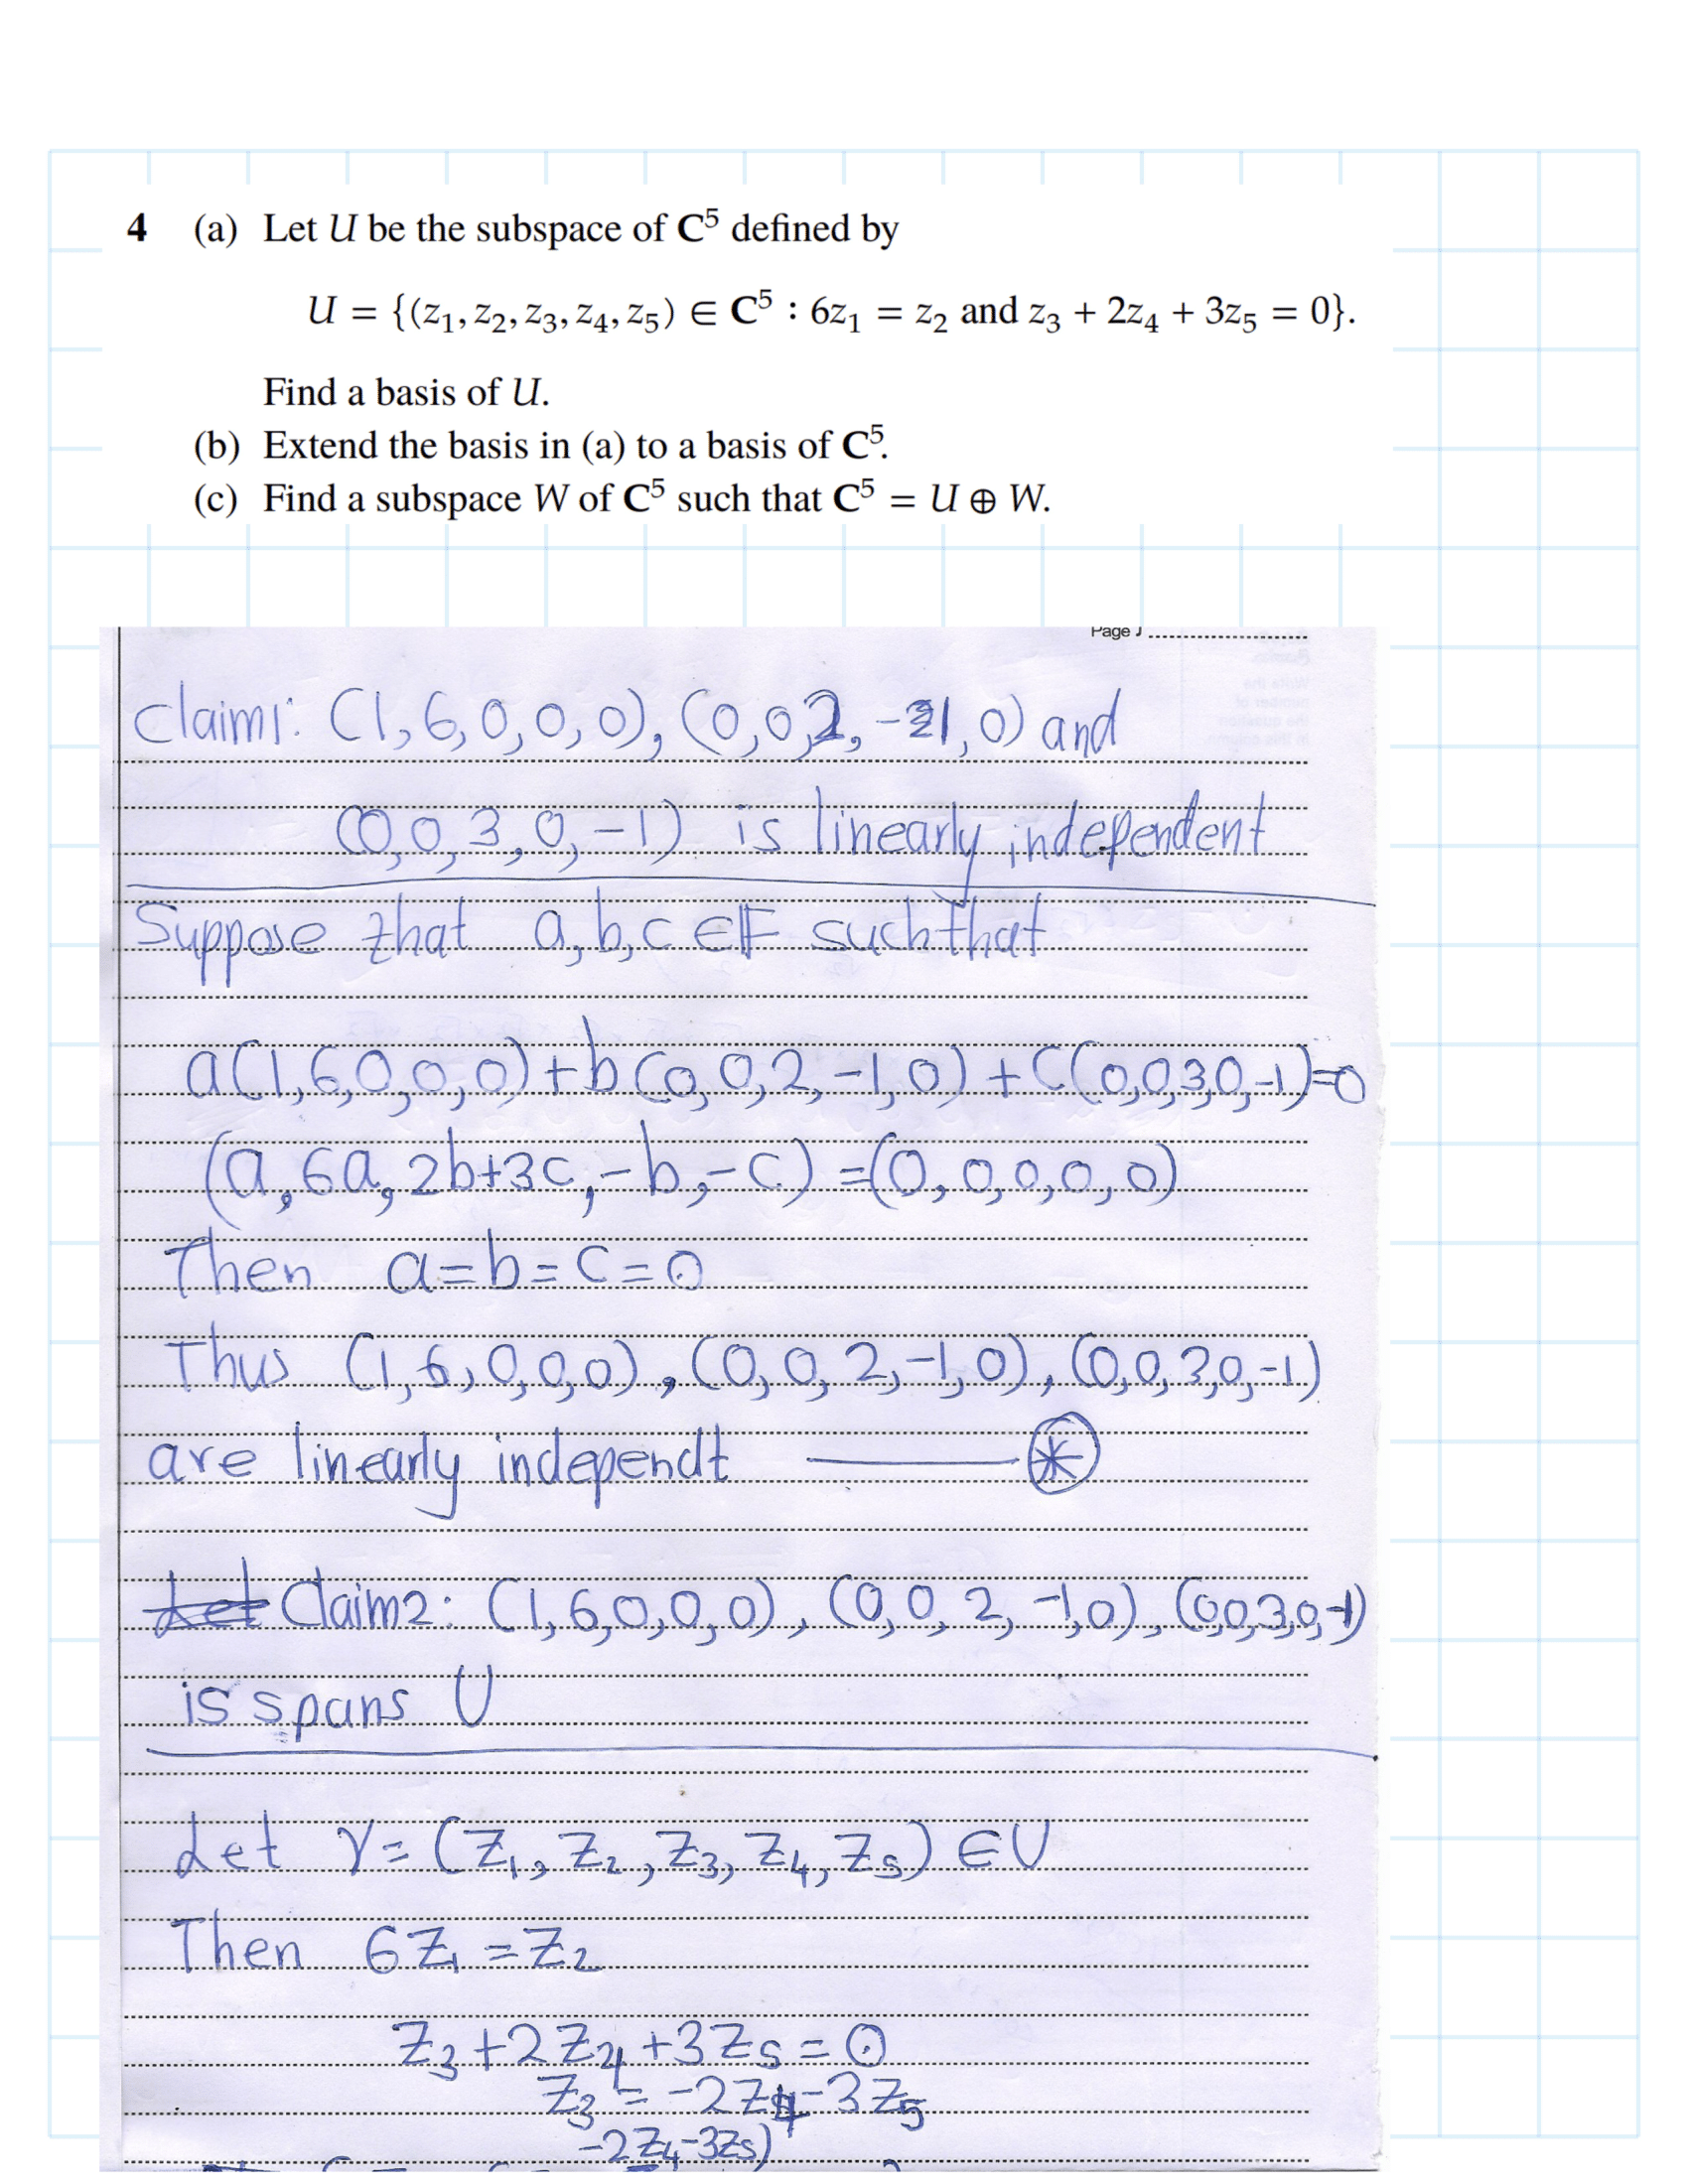 4 (a) Let U be the subspace of C⁵ defined by
U = {(z₁, z₂, z₃, z₄, z₅) ∈ C⁵ : 6z₁ = z₂ and z₃ + 2z₄ + 3z₅ = 0}.
Find a basis of U.
(b) Extend the basis in (a) to a basis of C⁵.
(c) Find a subspace W of C⁵ such that C⁵ = U ⊕ W.
Page
Claim1: (1,6,0,0,0), (0,0,2,-1,0) and
(0,0,3,0,-1) is linearly independent
Suppose that a,b,c ∈ F such that
a(1,6,0,0,0)+b(0,0,2,-1,0)+c(0,0,3,0,-1)=0
(a,6a,2b+3c,-b,-c)=(0,0,0,0,0)
Then a=b=c=0
Thus (1,6,0,0,0), (0,0,2,-1,0), (0,0,3,0,-1)
are linearly independt ——— ⊛
Claim2: (1,6,0,0,0), (0,0,2,-1,0), (0,0,3,0,-1)
is spans U
Let γ= (z₁, z₂, z₃, z₄, z₅) ∈ U
Then 6z₁ = z₂
z₃+2z₄+3z₅=0
z₃ = -2z₄-3z₅
-2z₄-3z₅)